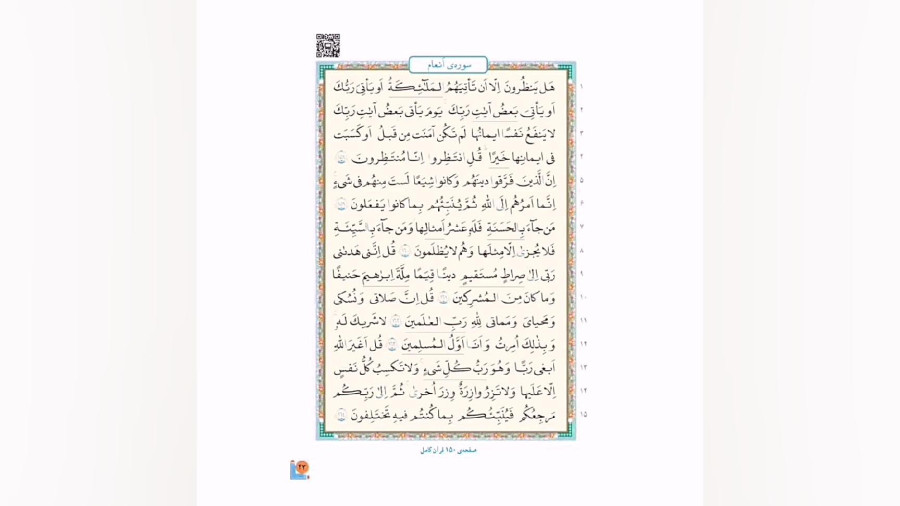 سوره‌ی اَنعام
هَل يَنظُرونَ اِلّا اَن تَأتِيَهُمُ المَلٰٓئِكَةُ اَو يَأتِیَ رَبُّكَ ١
اَو يَأتِیَ بَعضُ ءايٰتِ رَبِّكَ يَومَ يَأتی بَعضُ ءايٰتِ رَبِّكَ ٢
لا يَنفَعُ نَفسًا ايمانُها لَم تَكُن ءامَنَت مِن قَبلُ اَو كَسَبَت ٣
فی ايمانِها خَيرًا قُلِ انتَظِروا اِنّا مُنتَظِرونَ ١٥٨ ٤
اِنَّ الَّذينَ فَرَّقوا دينَهُم وَ كانوا شِيَعًا لَستَ مِنهُم فی شَیءٍ ٥
اِنَّما اَمرُهُم اِلَی اللهِ ثُمَّ يُنَبِّئُهُم بِما كانوا يَفعَلونَ ١٥٩ ٦
مَن جآءَ بِالحَسَنَةِ فَلَهٗ عَشرُ اَمثالِها وَ مَن جآءَ بِالسَّيِّئَةِ ٧
فَلا يُجزىٰٓ اِلّا مِثلَها وَ هُم لا يُظلَمونَ ١٦٠ قُل اِنَّنی هَدىٰنی ٨
رَبّی اِلىٰ صِراطٍ مُستَقيمٍ دينًا قِيَمًا مِلَّةَ اِبرٰهيمَ حَنيفًا ٩
وَ ما كانَ مِنَ المُشرِكينَ ١٦١ قُل اِنَّ صَلاتی وَ نُسُكی ١٠
وَ مَحيایَ وَ مَماتی لِلّٰهِ رَبِّ العٰلَمينَ ١٦٢ لا شَريكَ لَهٗ ١١
وَ بِذٰلِكَ اُمِرتُ وَ اَنَا اَوَّلُ المُسلِمينَ ١٦٣ قُل اَغَيرَ اللهِ ١٢
اَبغی رَبًّا وَ هُوَ رَبُّ كُلِّ شَیءٍ وَ لا تَكسِبُ كُلُّ نَفسٍ ١٣
اِلّا عَلَيها وَ لا تَزِرُ وازِرَةٌ وِزرَ اُخرىٰ ثُمَّ اِلىٰ رَبِّكُم ١٤
مَرجِعُكُم فَيُنَبِّئُكُم بِما كُنتُم فيهِ تَختَلِفونَ ١٦٤ ١٥
صفحه‌ی ۱۵۰ قرآن کامل
۲۳